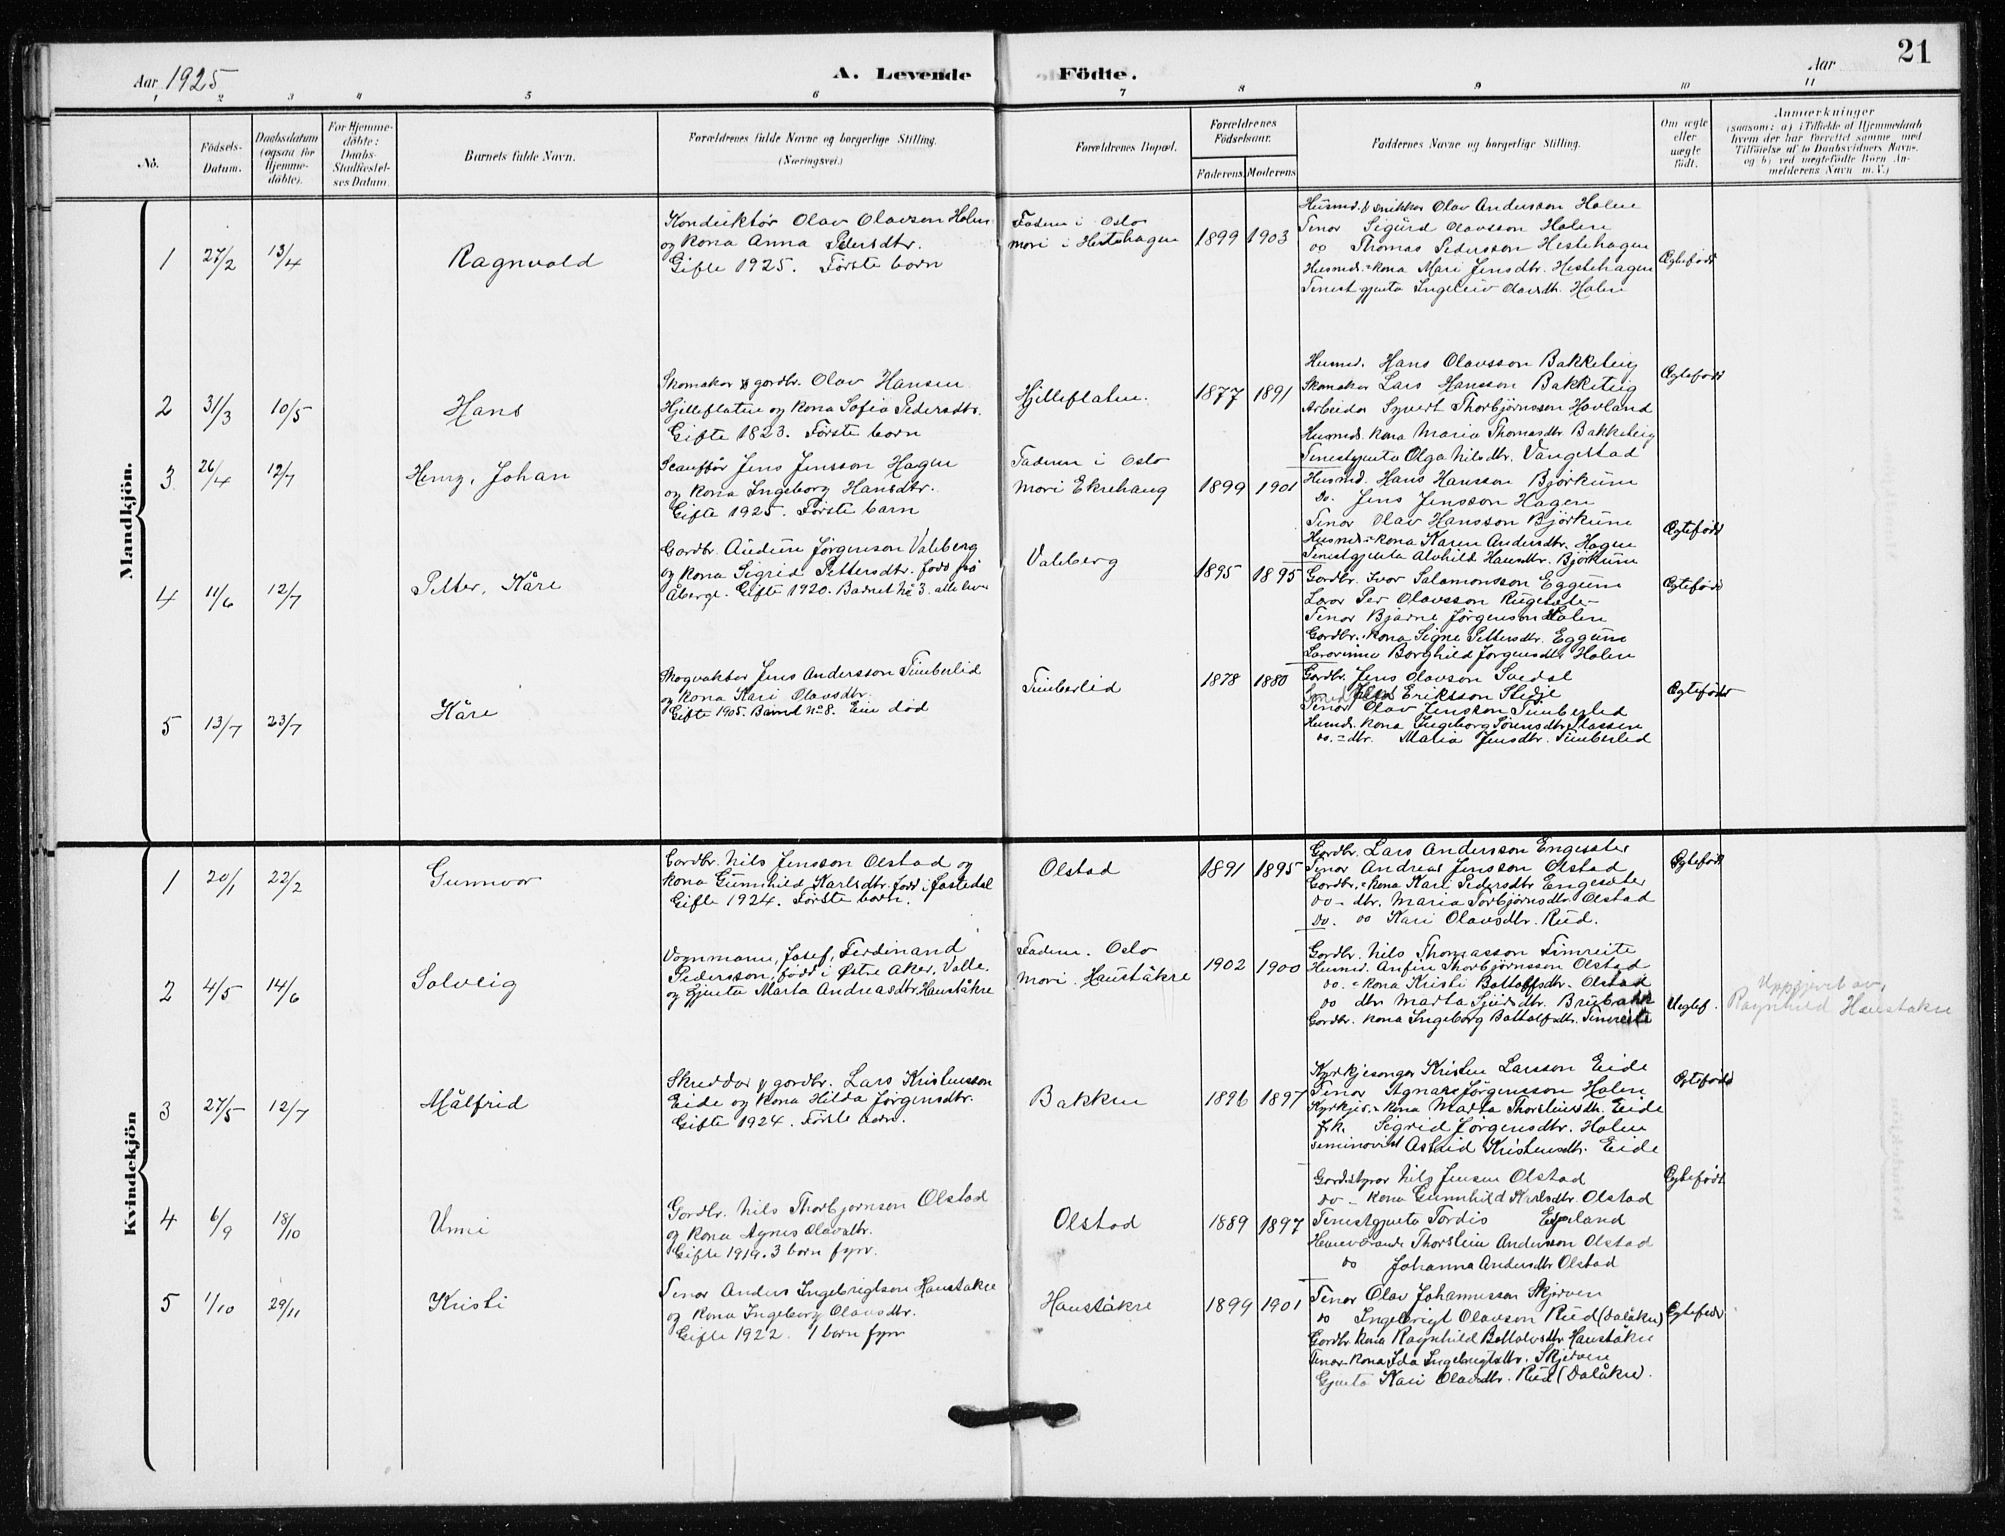 Aar 1925
A. Levende Födte.
Aar
21
1 2 3 4 5 6 7 8 9 10 11
No.
Födsels-Datum.
Daabsdatum (ogsaa for Hjemme-döbte).
For Hjemme-döbte: Daabs-Stadfæstel-ses Datum.
Barnets fulde Navn.
Forældrenes fulde Navne og borgerlige Stilling.
(Næringsvei.)
Forældrenes Bopæl.
Forældrenes Födselsaar.
Faderens. Moderens.
Faddernes Navne og borgerlige Stilling.
Om ægte eller uægte födt.
Anmærkninger
(saasom: a) i Tilfælde af Hjemmedaab
hvem der har forrettet samme, med
Tilföielse af to Daabsvidners Navne,
og b) ved uægtefödte Börn An-
melderens Navn m. V.)
Mandkjön.
1 27/2 13/4 Ragnvald
Konduktør Olav Olavson Holen
og kona Anna Pedersdtr.
Gifte 1925. Første born
Faderen i Oslo
Mori i Hestehagen
1899 1903
Husmd. & snikkar Olav Anderson Holen
Tenar Sigurd Olavsson Holen
do Thomas Pedersson Hestehagen
Husmds.-kona Mari Jensdtr. Hestehagen
Tenestgjenta Ingeleiv Olavsdtr. Holen
Ægtefødt
2 31/3 10/5 Hans
Skomakar & gardbr. Olav Hansen
Hjelleflaten og kona Sofia Pedersdtr.
Gifte 1823. Første born
Hjelleflaten.
1877 1891
Husmd. Hans Olavsson Bakketeig
Skomakar Lars Hansson Bakketeig
Arbeidar Syvert Thorbjørnsson Hovland
Husmds. kona Maria Thomasdtr. Bakketeig
Tenestgjenta Olga Nilsdtr. Vangestad
Ægtefødt
3 26/4 12/7 Henry, Johan
Scauffør Jens Jensson Hagen
og kona Ingeborg Hansdtr.
Gifte 1925. Første barn
Faderen i Oslo
Mori Ekrehaug
1899 1901
Husmd. Hans Hansson Bjørkum
Do. Jens Jensson Hagen
Tenar Olav Hansson Bjørkum
Husmds-kona Karen Andersdtr. Hagen
Tenestgjenta Alvhild Hansdtr. Bjørkum
Ægtefødt
4 11/6 12/7 Petter, Kåre
Gardbr. Audun Jørgenson Valeberg
og kona Sigrid Pettersdtr. fødd på
Åberge. Gifte 1920. Barnet No 3. alle leve
Valeberg
1895 1895
Gardbr. Ivar Salamonsson Eggum
Lærar Per Olavsson Rugesæter
Tenar Bjarne Jørgenson Holen
Gardbr.-kona Signe Pettersdtr. Eggum
Lærarinne Borghild Jørgensdtr Holen
Ægtefødt
5 13/7 23/7 Kåre
Skogvaktar Jens Andersson Timberlid
og kona Kari Olavsdtr.
Gifte 1905. Barnet No 8. Ein død
Timberlid
1878 1880
Gardbr. Jens Olavson Svedal
Eriksson Stedje
Tenar Olav Jensson Timberlid
Husmds. kona Ingeborg Sørensdtr. Plassen
do.-dtr. Maria Jensdtr. Timberlid
Ægtefødt
Kvindekjön
1 20/1 22/2 Gunnvor
Gardbr. Nils Jensson Olstad og
kona Gunnhild Karlsdtr. fødd i Jostedal
Gifte 1924. Første born.
Olstad
1891 1895
Gardbr. Lars Andersson Engesæter
Tenar Andreas Jensson Olstad
Gardbr.-kona Kari Pedersdtr Engesæter
do - dtr. Maria Torbjørnsdtr. Olstad
Do. do Kari Olavsdtr. Rud.
Ægtefødt
2 4/5 14/6 Solveig
Vognmann, Josef, Ferdinand
Pedersson, fødd i Østre Aker, Valle.
og Gjenta Marta Andreasdtr. Haukåkre
Faderen. Oslo
Mori. Haukåkre
1902 1900
Gardbr. Nils Thomasson Timreite
Husmd. Anfin Thorbjørnsson Olstad
do. - kona Kristi Bottolfsdtr. Olstad
do dtr Marta Sjursdtr. Brubakk
Gardbr. kona Ingeborg Bottolfsdtr. Timreite
Uegtef.
Uppgjevet av,
Ragnhild Haukåkre
3 27/5 12/7 Målfrid
Skreddar & gardbr. Lars Kristensson
Eide og kona Hilda Jørgensdtr.
Gifte 1924. Første barn.
Bakken
1896 1897
Kyrkjesongar Kristen Larsson Eide
Tenar Agnar Jørgensson Holen
Kyrkjes.-kona Marta Thorsteinsdtr. Eide
frk. Sigrid Jørgensdtr. Holen
Seminarist Astrid Kristensdtr. Eide
Ægtefødd
4 6/9 18/10 Unni
Gardbr. Nils Thorbjørnson Olstad
og kona Agnes Olavsdtr.
Gifte 1919. 3 born fyrr.
Olstad
1889 1897
Gardstyrar Nils Jensen Olstad
do - kona Gunnhild Karlsdtr. Olstad
Tenestgjenta Tordis Eggeland
Heimeværande Thorstein Anderson Olstad
do Johanna Andersdtr Olstad
Egtefødt
5 1/10 29/11 Kristi
Tenar Anders Ingebrigtson Haukåkre
og kona Ingeborg Olavsdtr.
Gifte 1922. 1 born fyrr
Haukåkre
1899 1901
Tenar Olav Johannesson Skjerven
do Ingebrigt Olavson Rud (Dalåkre)
Gardbr kona Ragnhild Bottolvsdtr. Haukåkre
Tenar-kona Ida Ingebrigtsdtr. Skjerven
Gjenta Kari Olavsdtr. Rud (Dalåkre).
Egtefødt